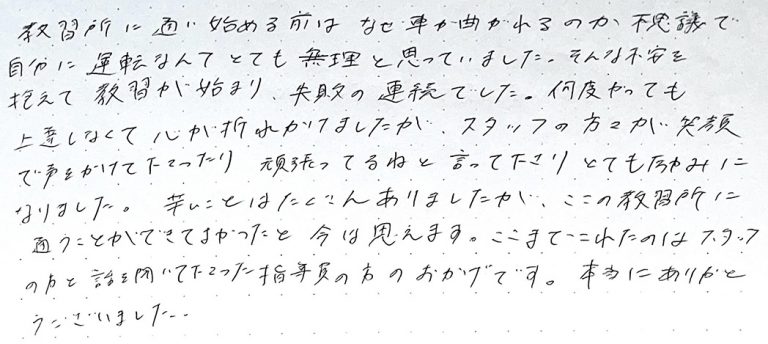 教習所に通い始める前はなぜ車が曲がれるのか不思議で
自分に運転なんてとても無理と思っていました。そんな不安を
抱えて教習が始まり、失敗の連続でした。何度やっても
上達しなくて心が折れかけましたが、スタッフの方々が笑顔
で声をかけて下さったり頑張ってるねと言って下さりとても励みに
なりました。辛いことはたくさんありましたが、ここの教習所に
通うことができてよかったと今は思えます。ここまでこれたのはスタッフ
の方と話を聞いて下さった指導員の方のおかげです。本当にありがと
うございました。